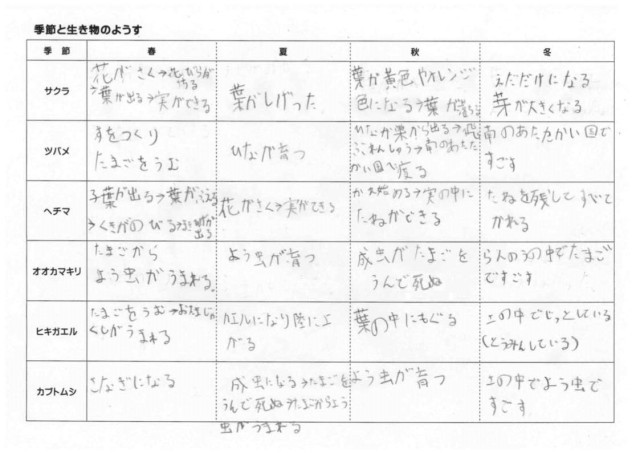 季節と生き物のようす
季節 春 夏 秋 冬
サクラ
花がさく→花びらが
ちる
→葉が出る→実ができる
葉がしげった
葉が黄色やオレンジ
色になる→葉が落ちる
えだだけになる
芽が大きくなる
ツバメ
すをつくり
たまごをうむ
ひなが育つ
ひなが巣から出る→飛
ぶれんしゅう→南のあたた
かい国へ渡る
南のあたたかい国で
すごす
ヘチマ
子葉が出る→葉がふえる
→くきがのびる
出る
花がさく→実ができる
かれ始める→実の中に
たねができる
たねを残してすべて
かれる
オオカマキリ
たまごから
よう虫がうまれる。
よう虫が育つ
成虫がたまごを
うんで死ぬ
らんのうの中でたまご
ですごす
ヒキガエル
たまごをうむ→おたまじゃ
くしがうまれる
カエルになり陸に上
がる
葉の中にもぐる
土の中でじっとしている
(とうみんしている)
カブトムシ
さなぎになる
成虫になる→たまごを
うんで死ぬ→たまごからよう
虫がうまれる
よう虫が育つ
土の中でよう虫で
すごす